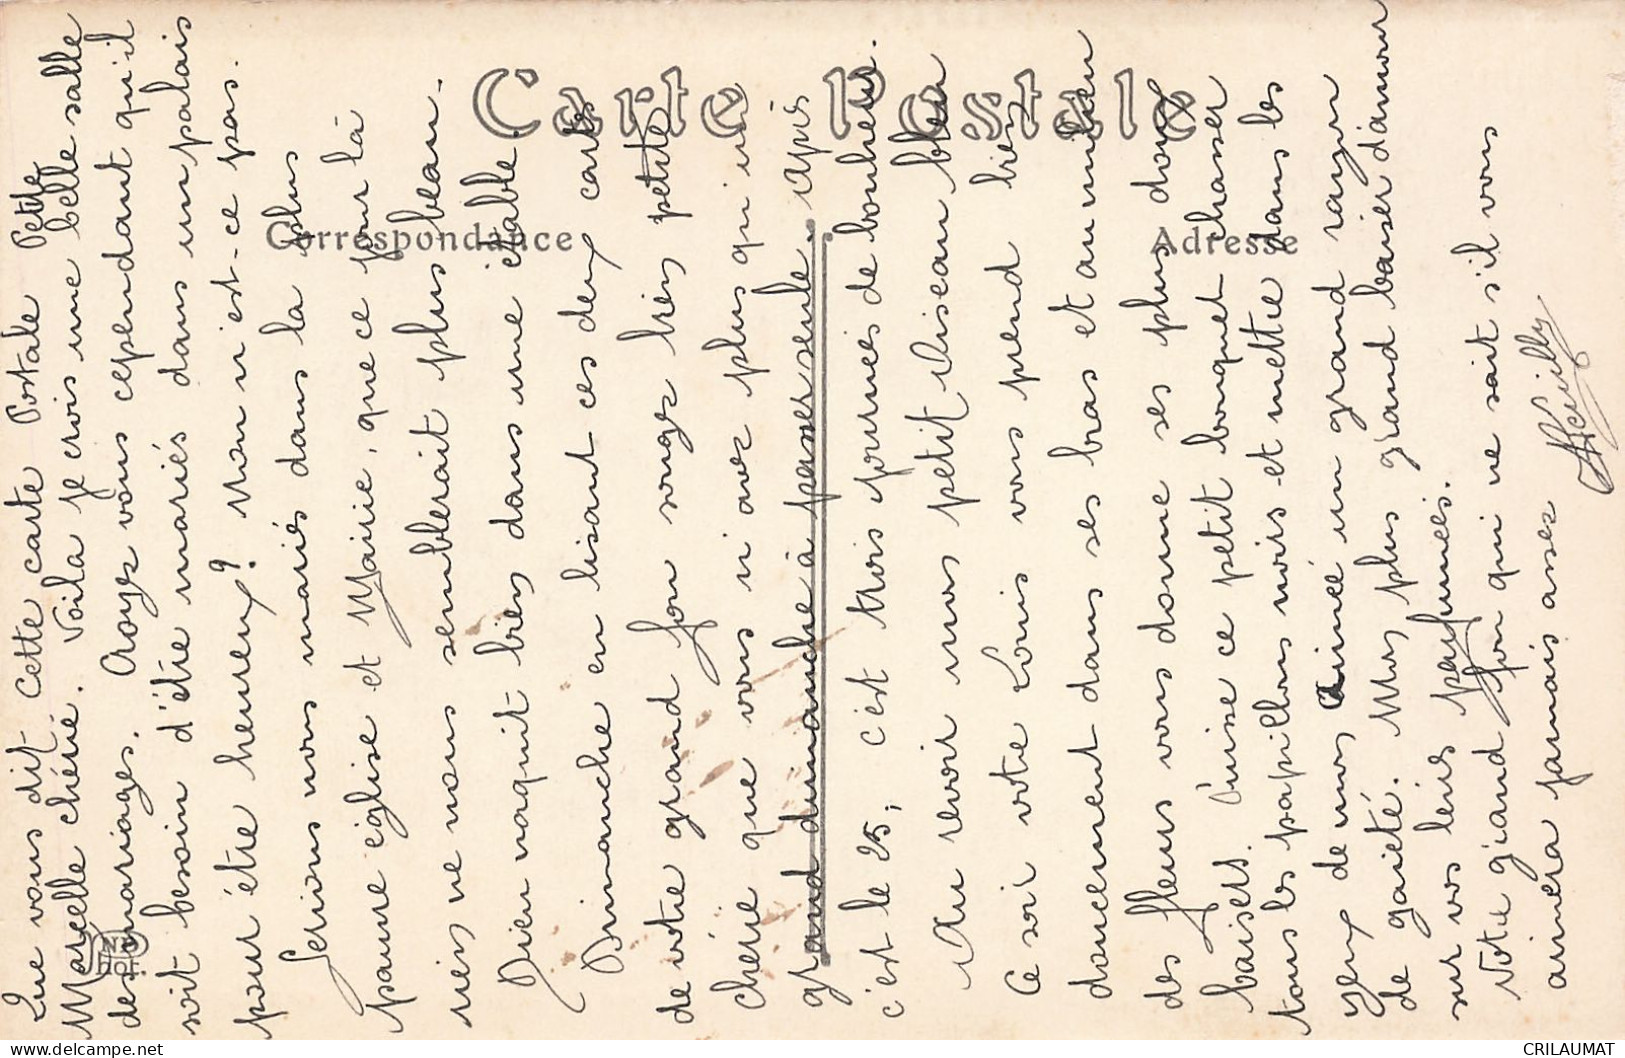 Carte Postale
Correspondance
Adresse
Que vous dit Cette carte Postale Petite
Marcelle chérie. Voila je crois une belle salle
des mariages. Croyez vous cependant qu'il
soit besoin d'être mariés dans un palais
pour être heureux? Mon n'est-ce pas.
Serions nous mariés dans la plus
pauvre église et Mairie, que ce jour là
rien ne nous semblerait plus beau.
Dieu naquit bien dans une étable.
Dimanche en lisant ces deux cartes
de votre grand fou songez bien petite
chérie que vous n'avez plus qu'un
grand dimanche à passer seule. Après
c'est le 25, c'est trois journées de bonheur.
Au revoir mon petit Oiseau bleu
Ce soir votre Louis vous prend bien
doucement dans ses bras et au milieu
des fleurs vous donne ses plus doux
baisers. Puisse ce petit bouquet chasser
tous les papillons noirs et mettre dans les
yeux de mon Aimée un grand rayon
de gaieté. Mon plus grand baiser d'amour
sur vos levres parfumées.
Votre grand fou qui ne sait s'il vous
aimera jamais assez
CRILAUMAT